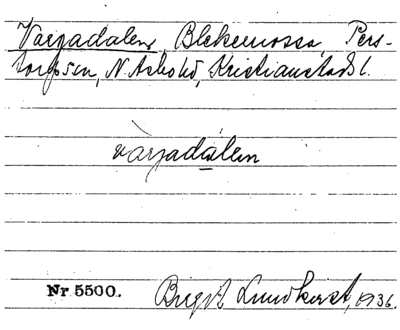 Vargadalen, Blekemossa, Pers-
torpsen, N. Åsbohd, Kristianstads l.
vàrjadàlen
Nr 5500. Birgit Lundkvist, 1936.